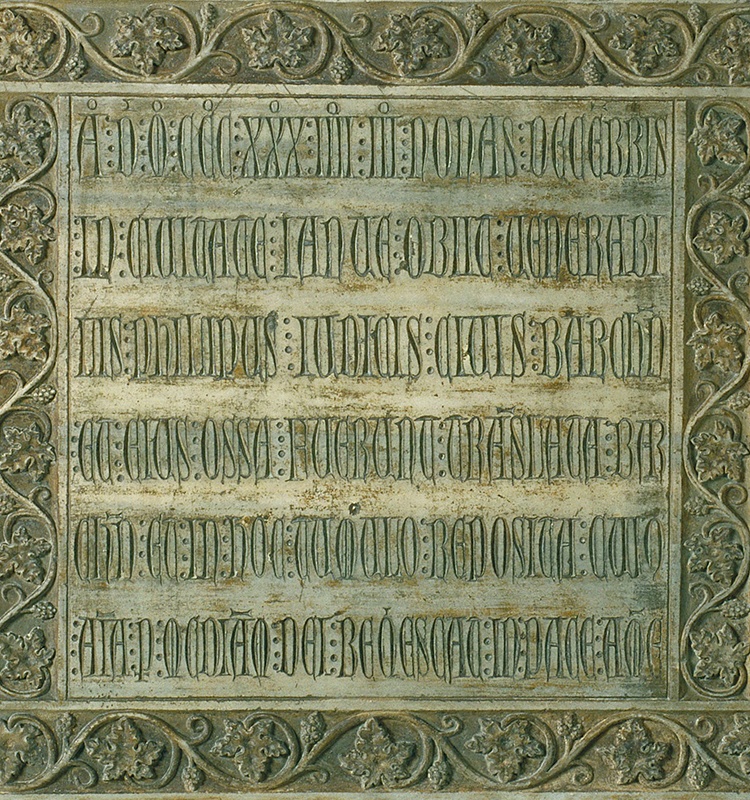 A : D : M : CCC : XXX : IIII : III : NONAS : DECEBRIS
: IN : CIUITATE : IANUE : OBIIT : UENERABI
LIS : PHILIPUS : IUDICIS : CIUIS : BARCHN
: ET : EIUS : OSSA : FUERUNT : TRASLATA : BAR
CHN : ET : IN : HOC : TUMULO : REPOSITA : CUIO
: AIA : P : MCDIAM : DEI : REQESCAT : IN : PACE : AME